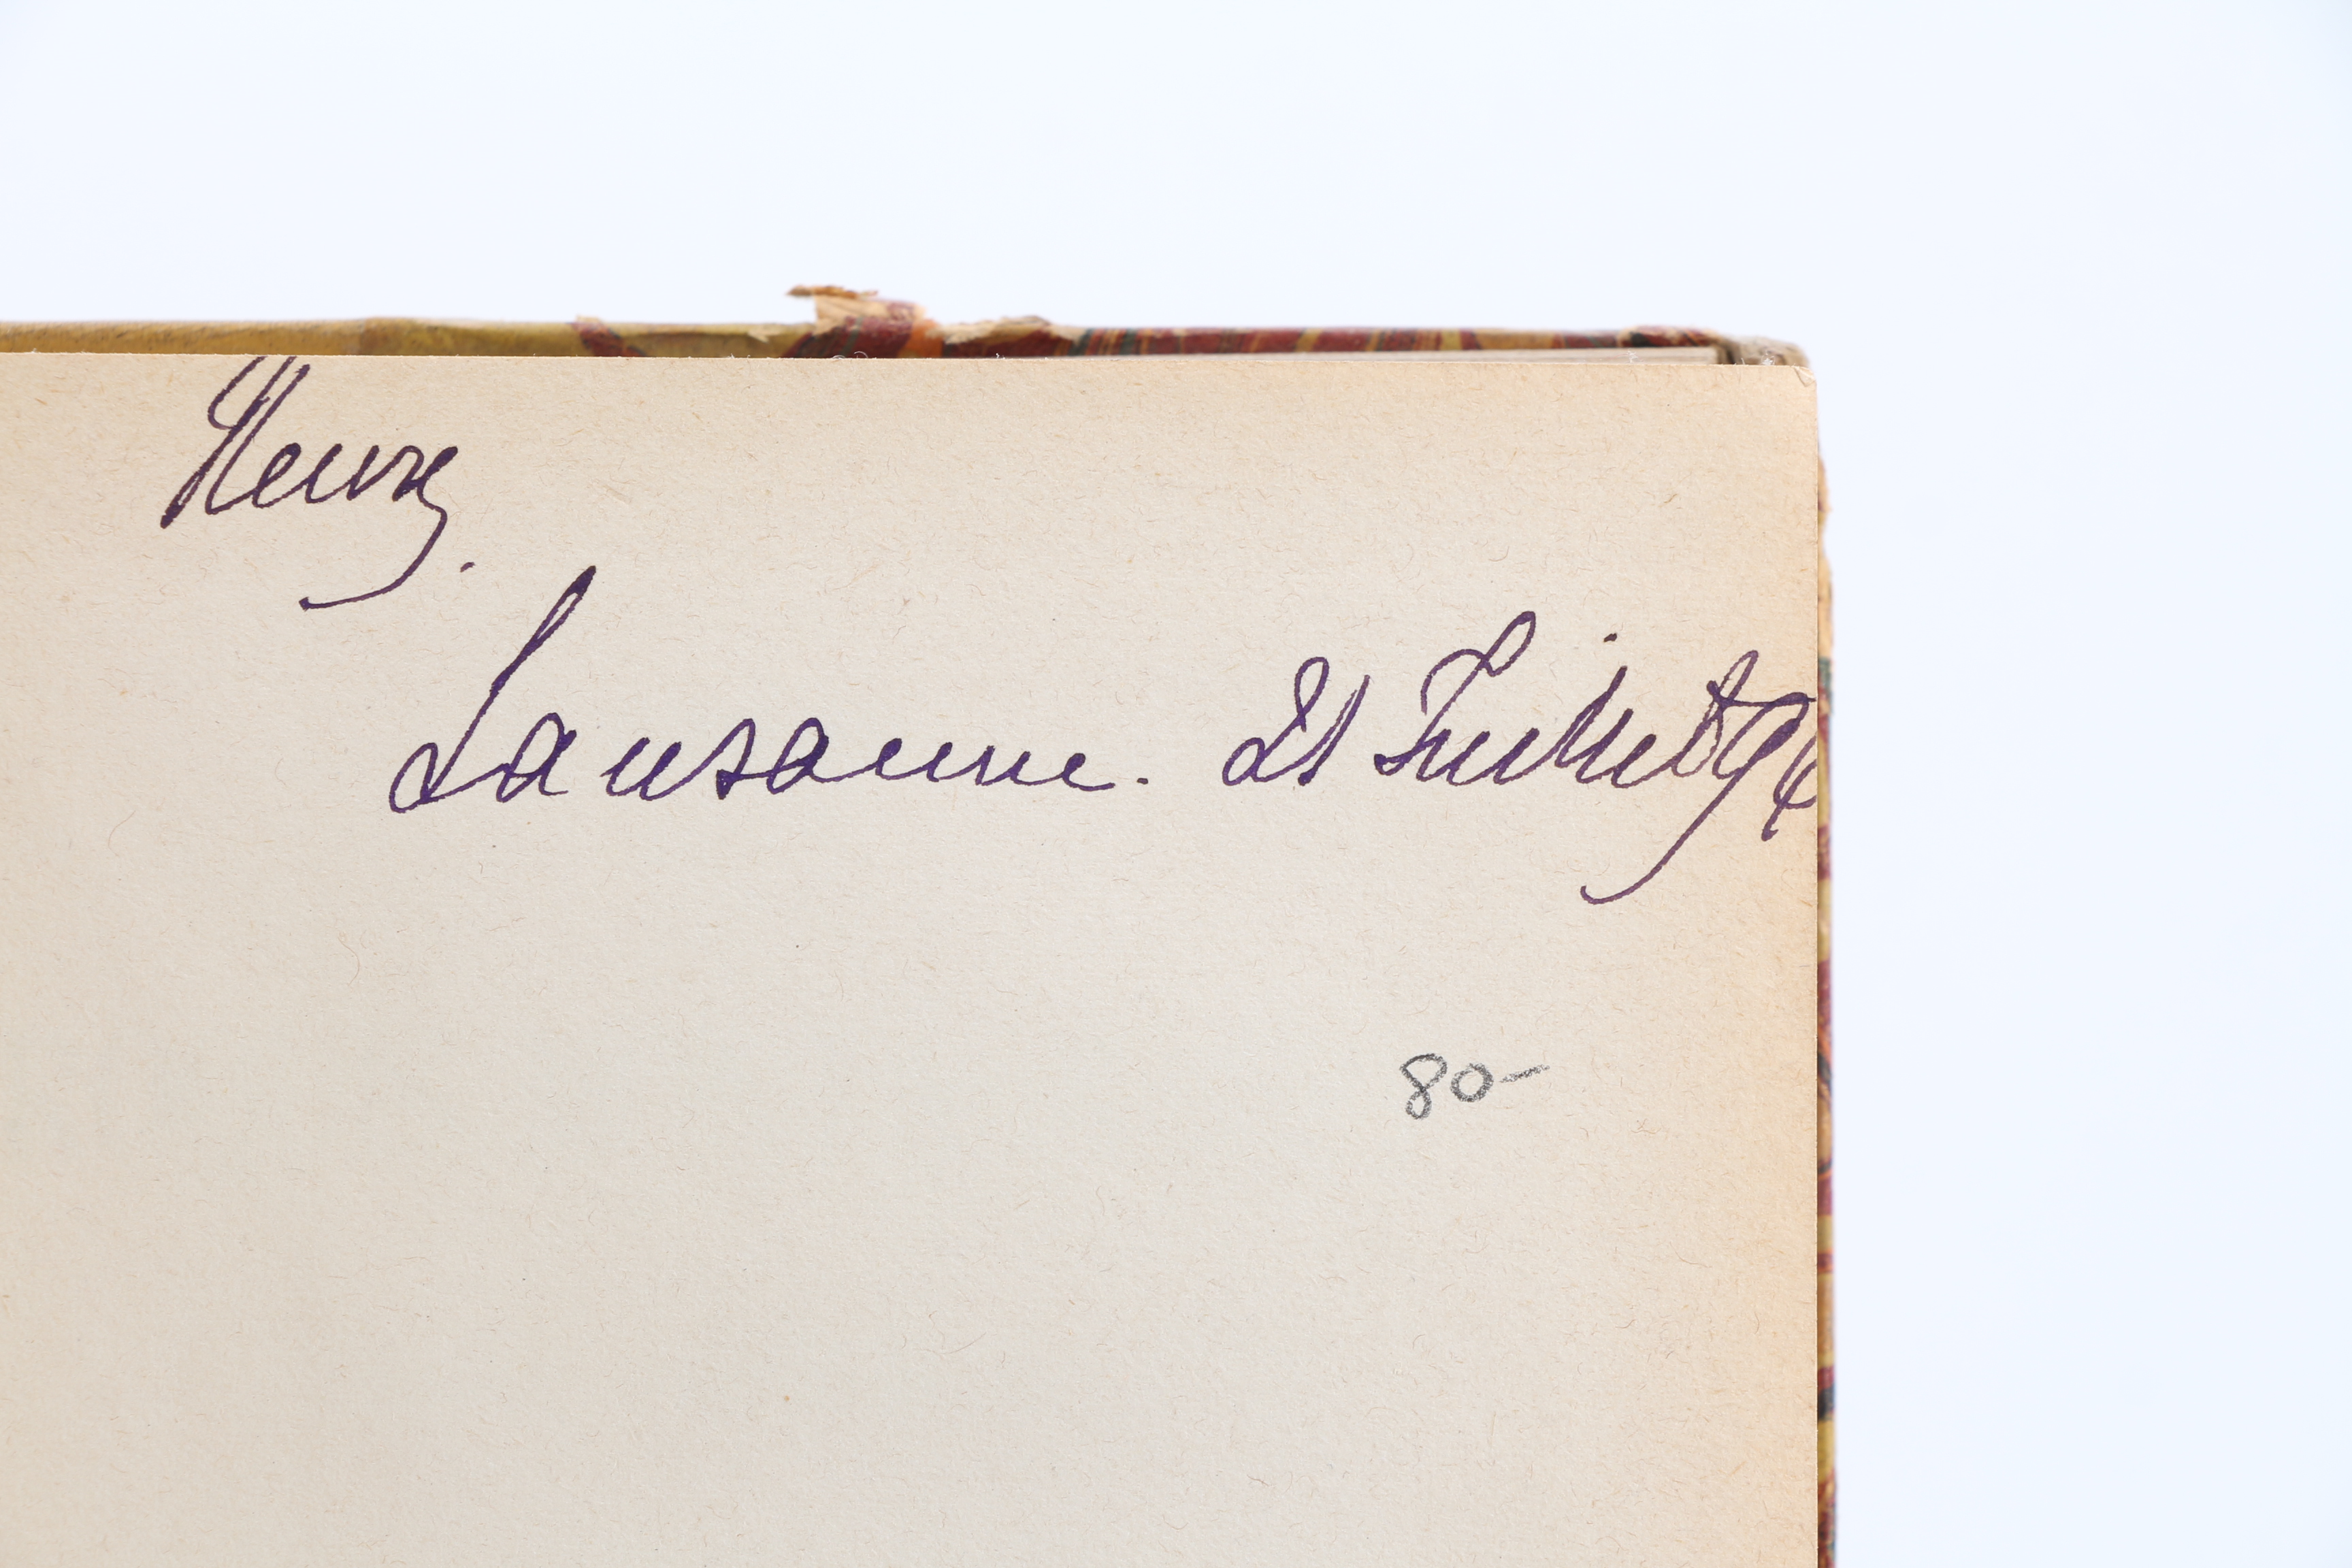 Lausanne. 21 Juillet 94
80-